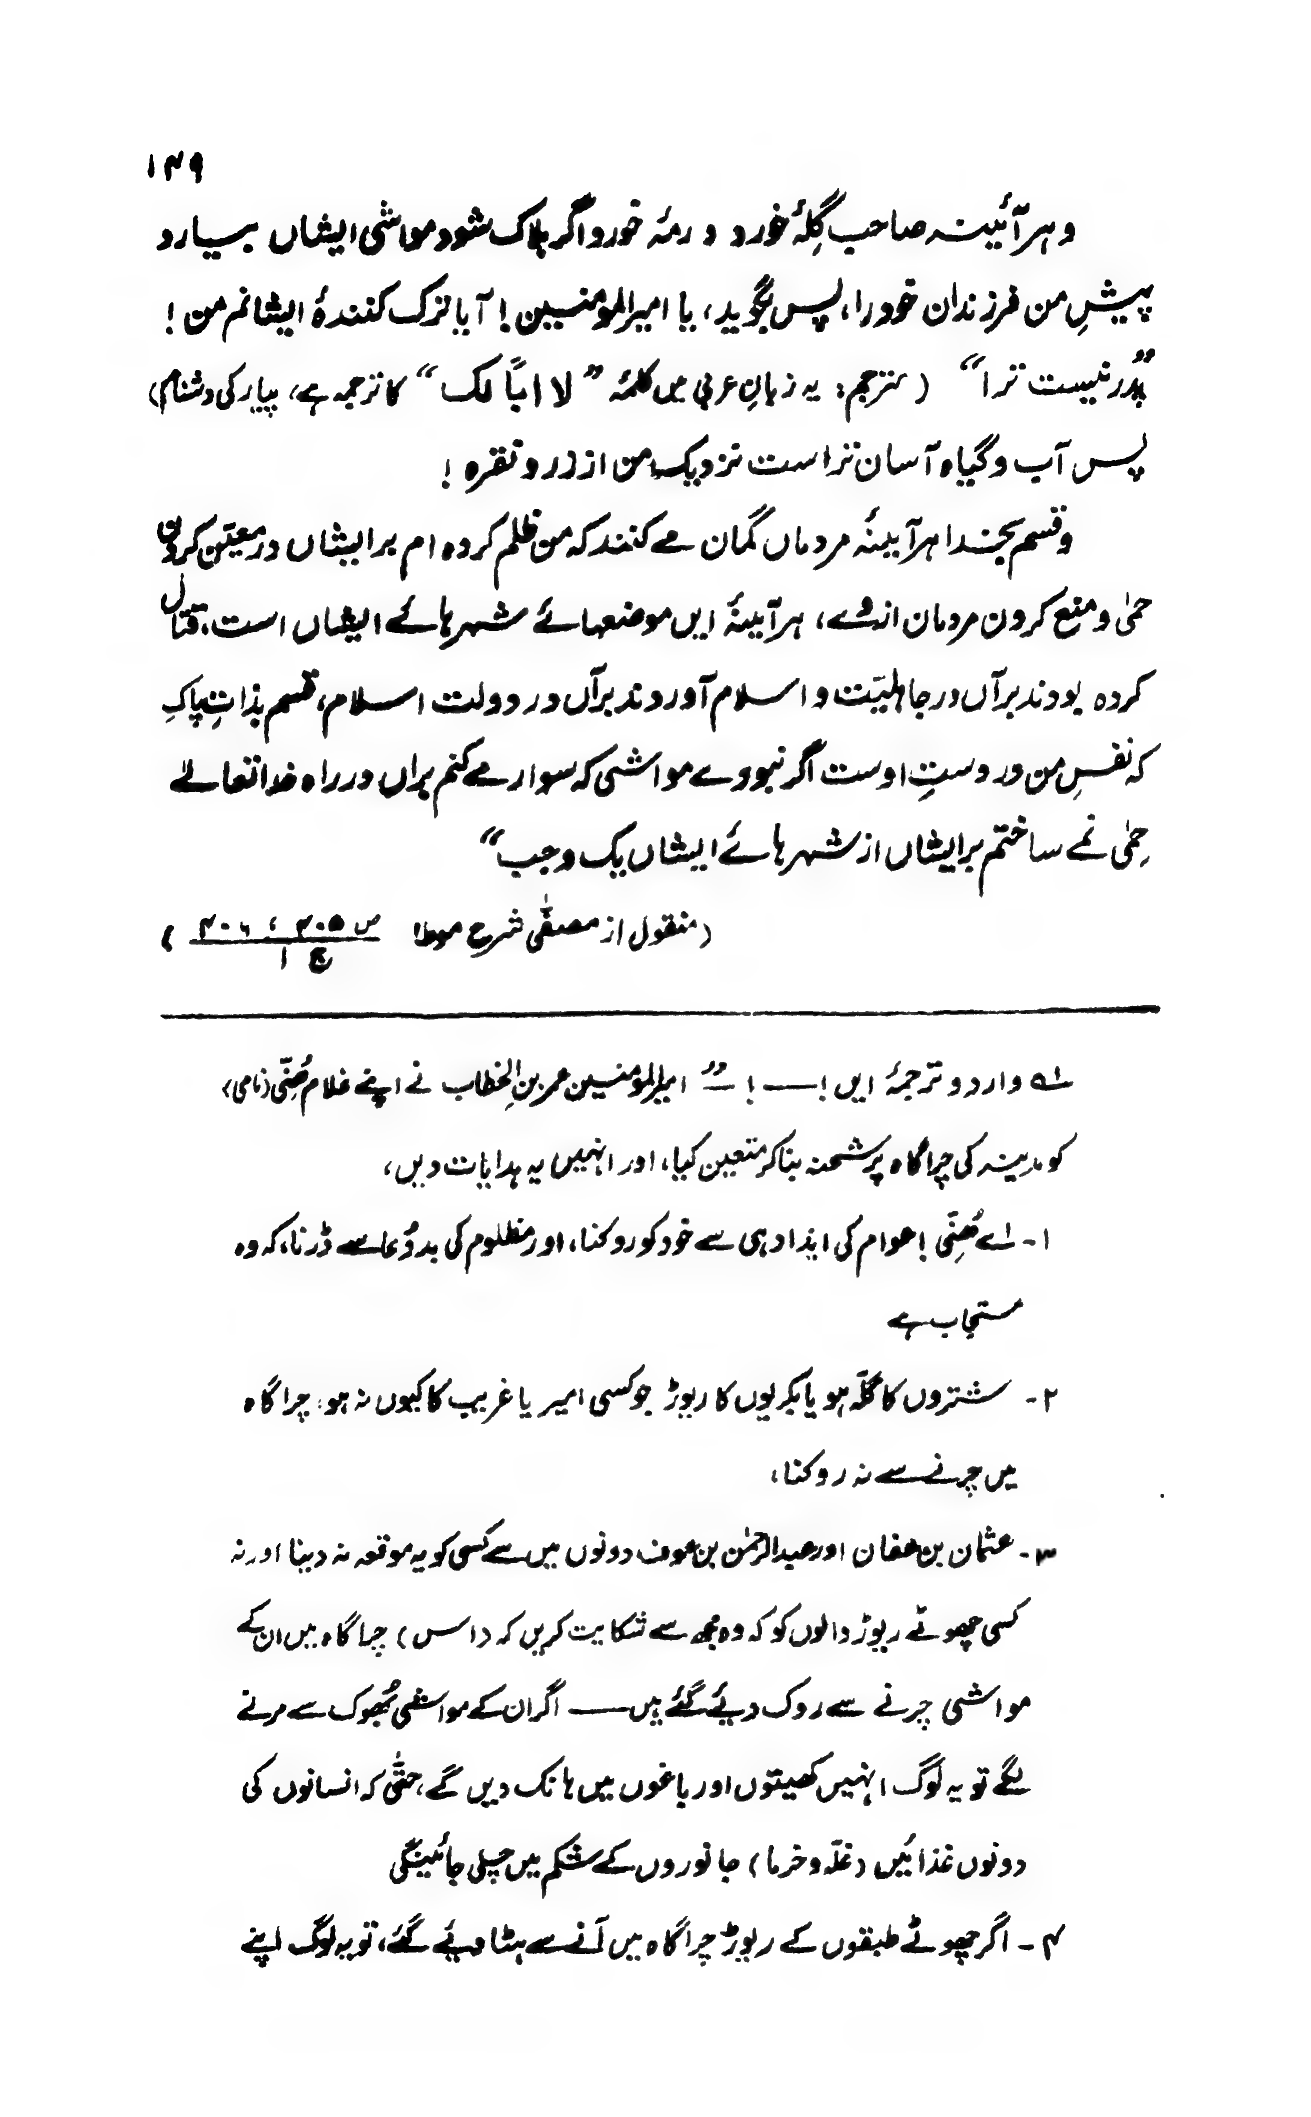 ۱۴۹
و ہر آئینہ صاحب گلۂ خورد و رمۂ خورد اگر ہلاک شود مواشی ایشاں بسیارد
پیشِ من فرزندان خود را، پس بگوید، یا امیرالمومنین! آیا ترک کنندۂ ایشانم من!
"پدر نیست ترا" (مترجم: یہ زبانِ عربی میں کلمۂ "لا اباً لک" کا ترجمہ ہے، پیار کی دشنام)
پس آب و گیاہ آسان تر است نزدیک من از زر و نقرہ!
و قسم بخدا ہر آئینہ مردماں گمان مے کنند کہ من ظلم کردہ ام بر ایشاں در معیّن کردن
حمیٰ و منع کردن مردمان از وے، ہر آئینہ ایں موضعہائے شہر ہائے ایشاں است، قتال
کردہ بودند برآں در جاہلیّت و اسلام آوردند برآں در دولت اسلام، قسم بذاتِ پاکِ
کہ نفسِ من در دستِ اوست اگر نبودے مواشی کہ سوار مے کنم براں در راہ خدا تعالےٰ
حِمیٰ نمے ساختم بر ایشاں از شہر ہائے ایشاں یک وجب"
(منقول از مصفّٰی شرح موطا ص ۴۰۵، ۴۰۶ ج ۱)
لہ و اردو ترجمۂ ایں! ـــ! ــ "امیرالمومنین عمر بن الخطاب نے اپنے غلام ھُنِّی (نامی)
کو مدینہ کی چراگاہ پر شحنہ بنا کر متعین کیا، اور انہیں یہ ہدایات دیں،
۱۔ اے ھُنِّی! عوام کی ایذا دہی سے خود کو روکنا، اور مظلوم کی بددُعا سے ڈرنا، کہ وہ
مستجاب ہے
۲۔ شتروں کا گلّہ ہو یا بکریوں کا ریوڑ جو کسی امیر یا غریب کا کیوں نہ ہو، چراگاہ
میں چرنے سے نہ روکنا،
۳۔ عثمان بن عفان اور عبدالرحمٰن بن عوف دونوں میں سے کسی کو یہ موقعہ نہ دینا اور نہ
کسی چھوٹے ریوڑ والوں کو کہ وہ مجھ سے شکایت کریں کہ (اس) چراگاہ میں ان کے
مواشی چرنے سے روک دیئے گئے ہیں ــــ اگر ان کے مواشی بُھوک سے مرنے
لگے تو یہ لوگ انہیں کھیتوں اور باغوں میں ہانک دیں گے، حتّٰی کہ انسانوں کی
دونوں غذائیں (غلّہ و خرما) جانوروں کے شکم میں چلی جائینگی
۴۔ اگر چھوٹے طبقوں کے ریوڑ چراگاہ میں آنے سے ہٹا دیئے گئے، تو یہ لوگ اپنے